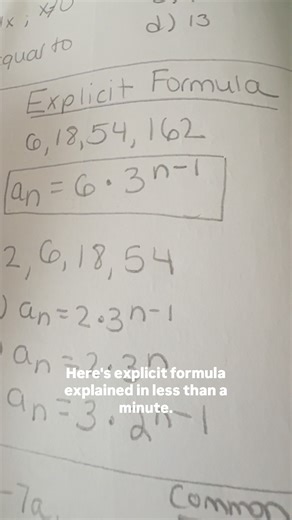 x ; x≠0
d) 13
equal to
Explicit Formula
6, 18, 54, 162
an = 6 · 3^n-1
2, 6, 18, 54
) an = 2 · 3^n-1
an = 2 · 3^n
Here's explicit formula
explained in less than a
minute.
an = 3 · 2^n-1
-7a
Common